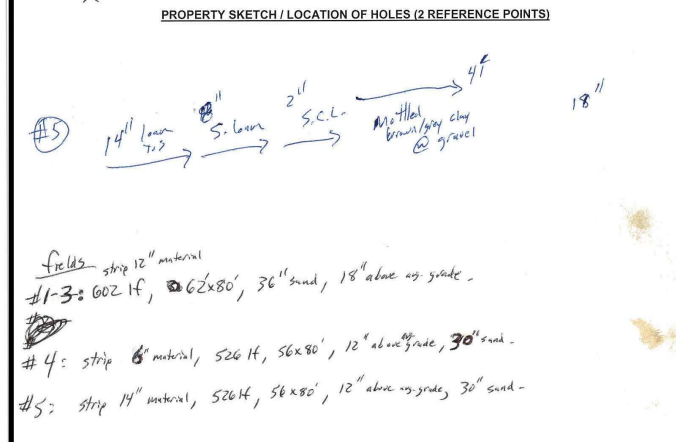 PROPERTY SKETCH / LOCATION OF HOLES (2 REFERENCE POINTS)
#5 14" loam T.S 8" S. loam 2" S.C.L. Mottled brown/grey clay @ gravel 41" 18"
fields strip 12" material
#1-3: 602 lf, 62'x80', 36" sand, 18" above avg. grade.
#4: strip 6" material, 526 lf, 56x80', 12" above avg grade, 30" sand.
#5: strip 14" material, 526 lf, 56x80', 12" above avg. grade, 30" sand.